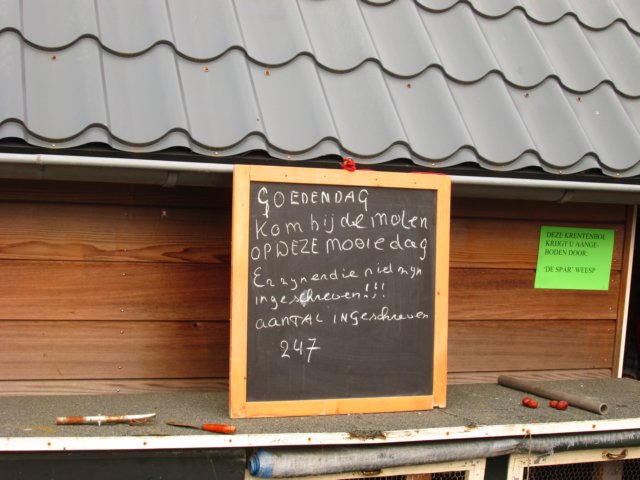 GOEDENDAG
Kom bij de molen
OP DEZE mooie dag
Er zijn er die niet zijn
ingeschreven!!!
AANTAL INGeschreven
247
DEZE KRENTENBOL
KRIJGT U AANGE-
BODEN DOOR:
'DE SPAR' WEESP